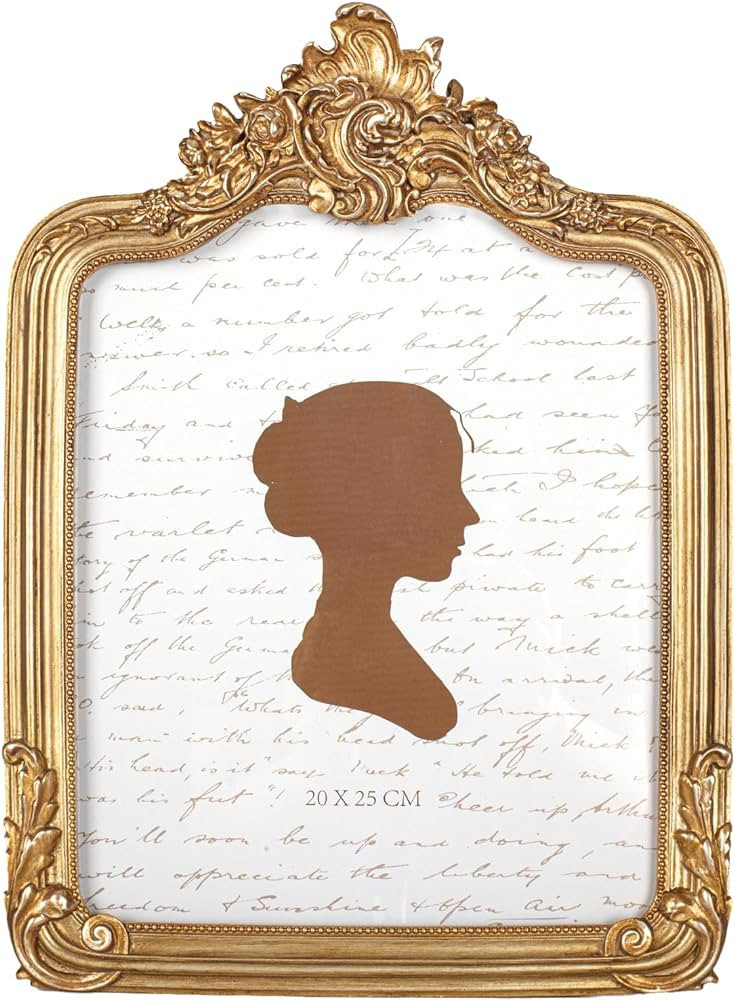 gave me one
was sold for £24 at a
so much per cent. What was the cost p
Well, a number got told for the
answer. so I retired badly wounded
Smith called School last
Friday and had seen
and surviv ked him
emember which I hope
the varlet
tory of the German had his foot
ot off and asked private to carry
in to the rear the way a shell
ok off the Germa but Mick
ignorant of th On arrival, the
O. said, "Whats bringing in
a man with his head shot off, Mick?
His head, is it" says Mick "He told me it
was his fut"! Cheer up, Arthu
20 X 25 CM
You'll soon be up and doing, an
will appreciate the liberty and
eedom & Sunshine & open air mor